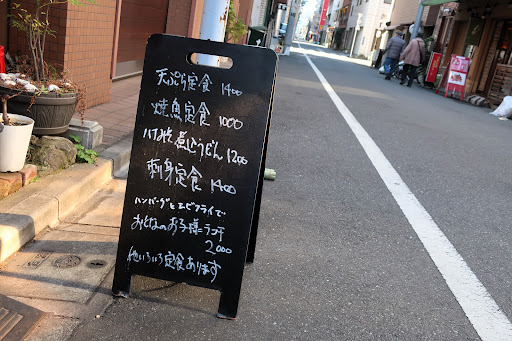 天ぷら定食 1400
焼魚定食 1000
ハナみそ煮込うどん 1200
刺身定食 1400
ハンバーグとエビフライで
おとなのお子様ランチ
2000
他いろいろ定食あります